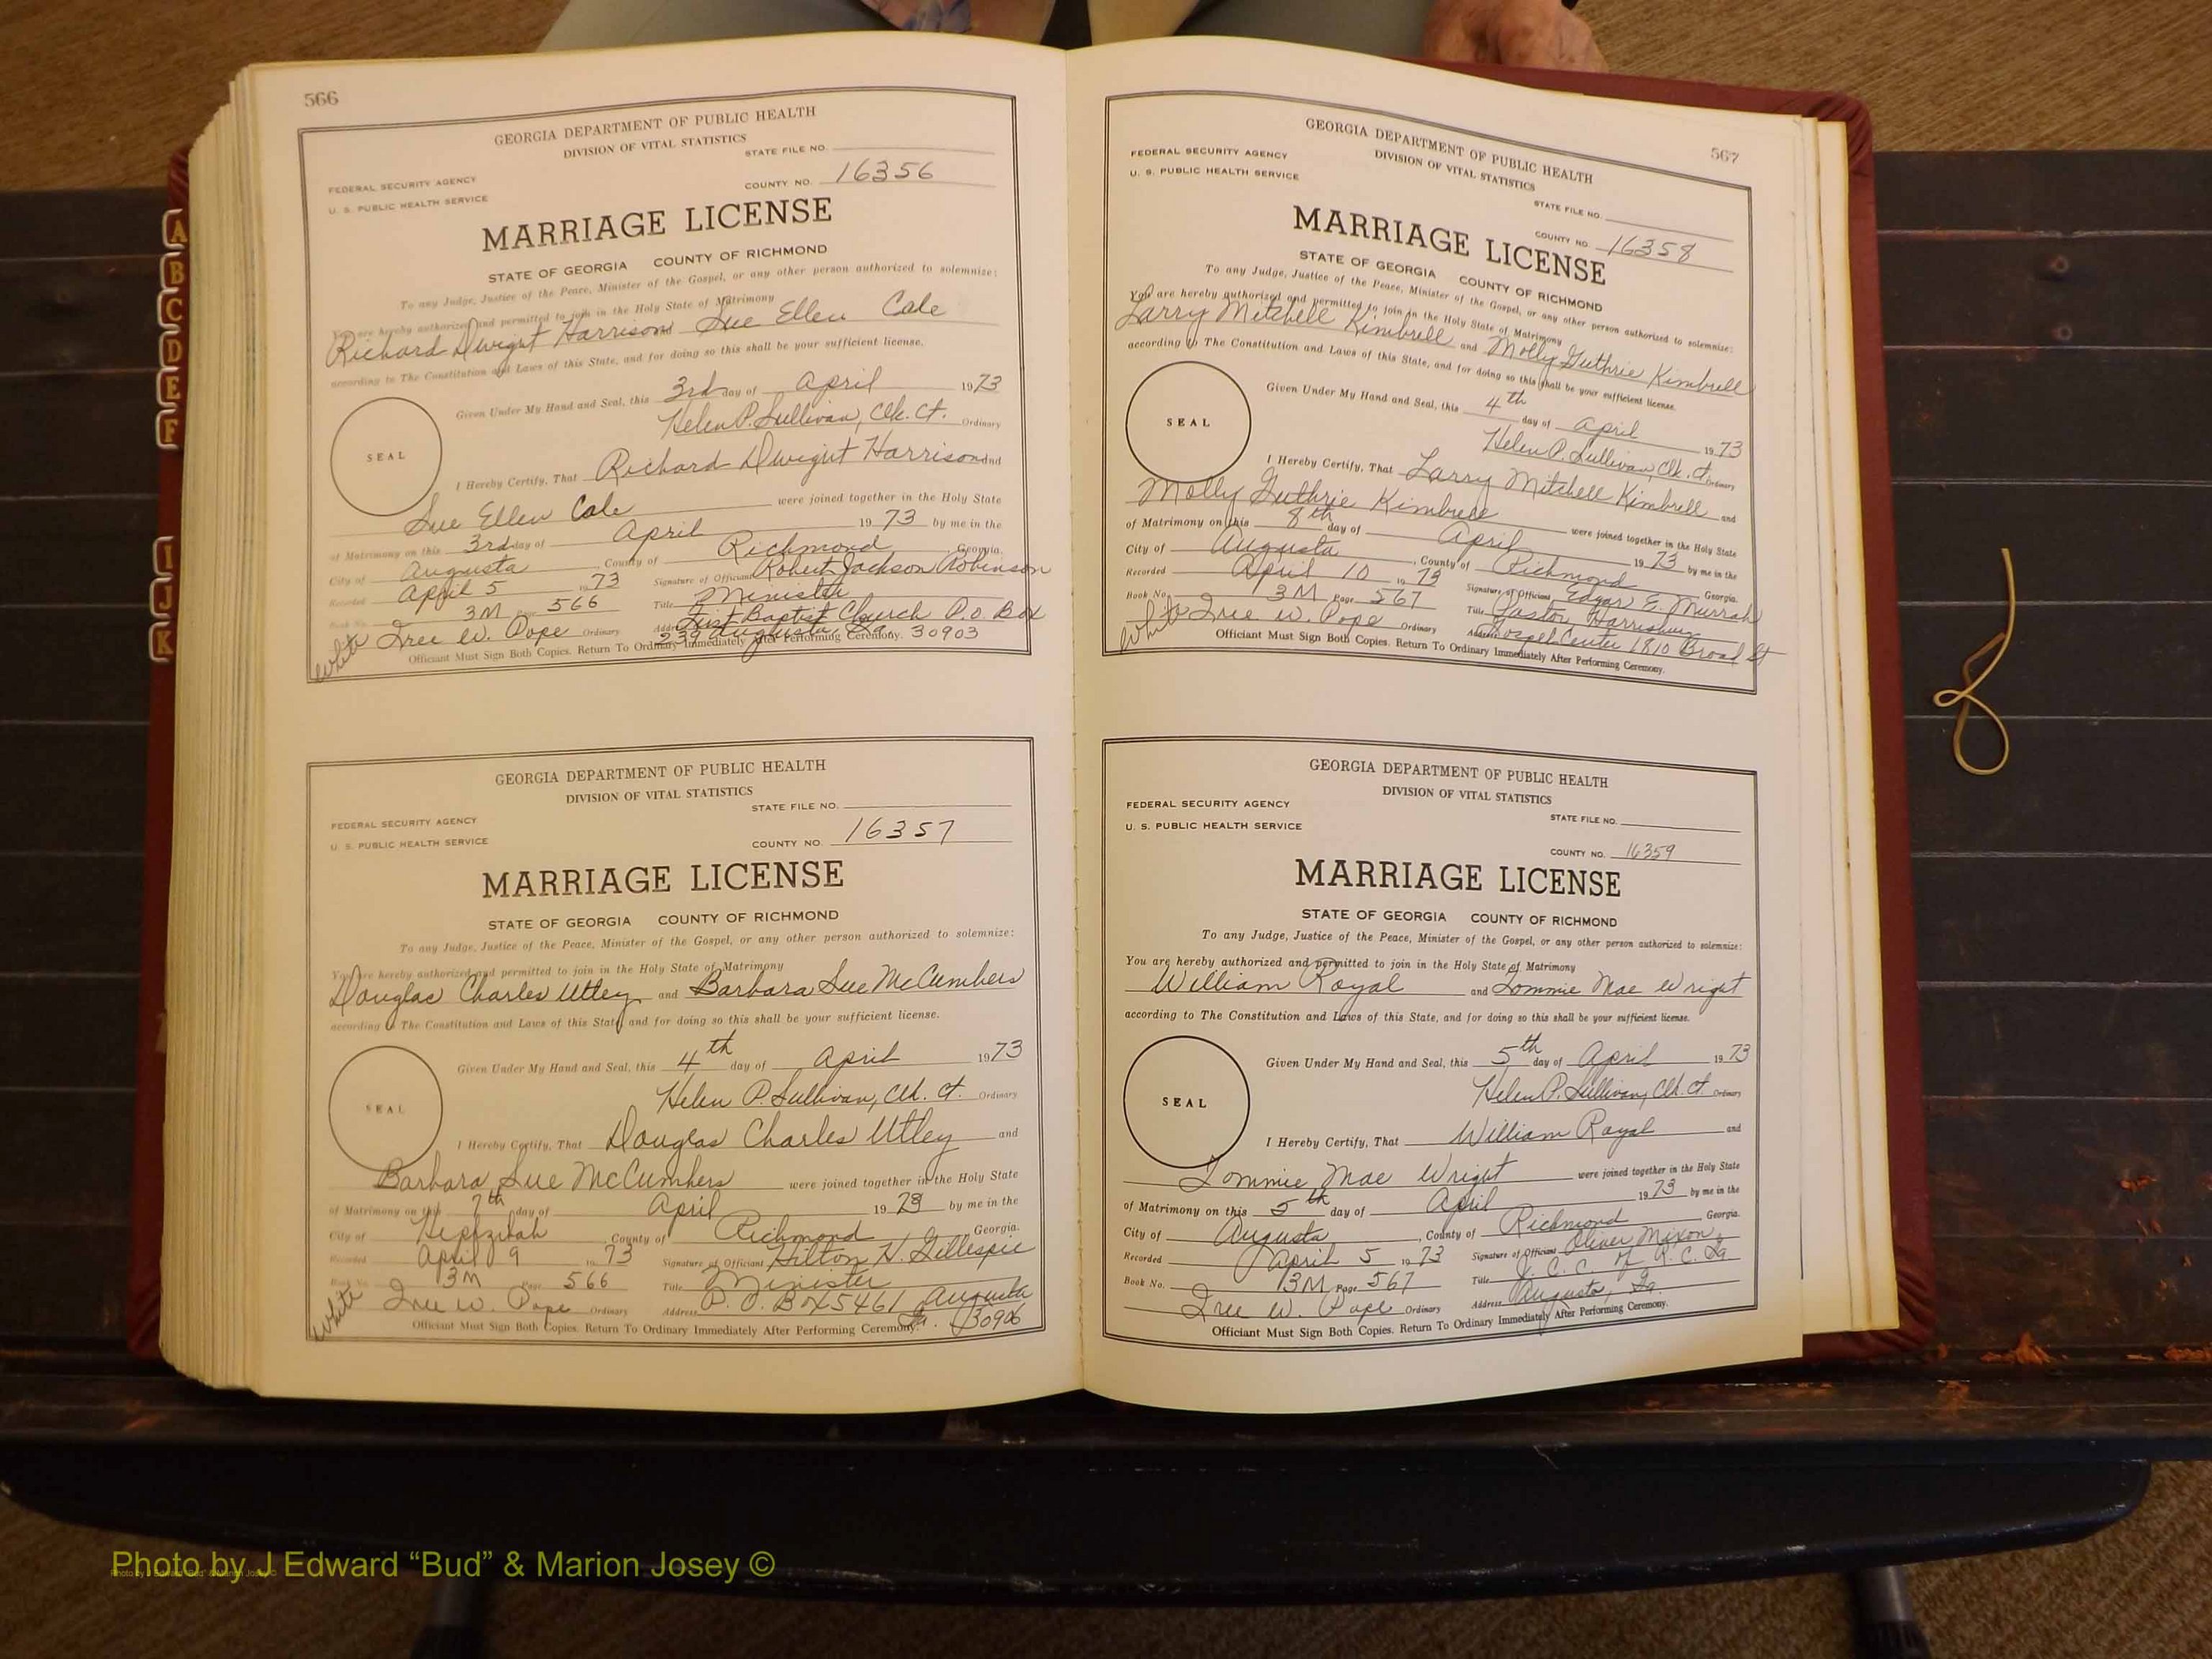 566
GEORGIA DEPARTMENT OF PUBLIC HEALTH
DIVISION OF VITAL STATISTICS
STATE FILE NO.
FEDERAL SECURITY AGENCY
COUNTY NO. 16356
U. S. PUBLIC HEALTH SERVICE
MARRIAGE LICENSE
STATE OF GEORGIA COUNTY OF RICHMOND
To any Judge, Justice of the Peace, Minister of the Gospel, or any other person authorized to solemnize:
You are hereby authorized and permitted to join in the Holy State of Matrimony
Richard Dwight Harrison and Sue Ellen Cale
according to The Constitution and Laws of this State, and for doing so this shall be your sufficient license.
Given Under My Hand and Seal, this 3rd day of April 1973
Helen P. Sullivan, Clk. Ct. Ordinary
SEAL
I Hereby Certify, That Richard Dwight Harrison and
Sue Ellen Cale were joined together in the Holy State
of Matrimony on this 3rd day of April 1973 by me in the
City of Augusta, County of Richmond Georgia.
Recorded April 5 1973 Signature of Officiant Robert Jackson Robinson
Book No. 3M Page 566 Title Minister
Iree W. Pope Ordinary Address First Baptist Church P.O. Box
239 Augusta, Ga. 30903
White
Officiant Must Sign Both Copies. Return To Ordinary Immediately After Performing Ceremony.
GEORGIA DEPARTMENT OF PUBLIC HEALTH
DIVISION OF VITAL STATISTICS
STATE FILE NO.
FEDERAL SECURITY AGENCY
COUNTY NO. 16357
U. S. PUBLIC HEALTH SERVICE
MARRIAGE LICENSE
STATE OF GEORGIA COUNTY OF RICHMOND
To any Judge, Justice of the Peace, Minister of the Gospel, or any other person authorized to solemnize:
You are hereby authorized and permitted to join in the Holy State of Matrimony
Douglas Charles Utley and Barbara Sue McCumbers
according to The Constitution and Laws of this State, and for doing so this shall be your sufficient license.
Given Under My Hand and Seal, this 4th day of April 1973
Helen P. Sullivan, Clk. Ct. Ordinary
SEAL
I Hereby Certify, That Douglas Charles Utley and
Barbara Sue McCumbers were joined together in the Holy State
of Matrimony on this 7th day of April 1973 by me in the
City of Hephzibah, County of Richmond Georgia.
Recorded April 9 1973 Signature of Officiant Hilton H. Gillespie
Book No. 3M Page 566 Title Minister
Iree W. Pope Ordinary Address P. O. Box 5461 Augusta
Ga. 30906
White
Officiant Must Sign Both Copies. Return To Ordinary Immediately After Performing Ceremony.
567
GEORGIA DEPARTMENT OF PUBLIC HEALTH
DIVISION OF VITAL STATISTICS
FEDERAL SECURITY AGENCY
U. S. PUBLIC HEALTH SERVICE
STATE FILE NO.
COUNTY NO. 16358
MARRIAGE LICENSE
STATE OF GEORGIA COUNTY OF RICHMOND
To any Judge, Justice of the Peace, Minister of the Gospel, or any other person authorized to solemnize:
You are hereby authorized and permitted to join in the Holy State of Matrimony
Larry Mitchell Kimbrell and Molly Guthrie Kimbrell
according to The Constitution and Laws of this State, and for doing so this shall be your sufficient license.
Given Under My Hand and Seal, this 4th day of April 1973
Helen P. Sullivan, Clk. Ct. Ordinary
SEAL
I Hereby Certify, That Larry Mitchell Kimbrell and
Molly Guthrie Kimbrell were joined together in the Holy State
of Matrimony on this 8th day of April 1973 by me in the
City of Augusta, County of Richmond Georgia.
Recorded April 10 1973 Signature of Officiant Edgar E. Murrah
Book No. 3M Page 567 Title Pastor, Harrisburg
Iree W. Pope Ordinary Address Gospel Center 1810 Broad St
White
Officiant Must Sign Both Copies. Return To Ordinary Immediately After Performing Ceremony.
GEORGIA DEPARTMENT OF PUBLIC HEALTH
DIVISION OF VITAL STATISTICS
FEDERAL SECURITY AGENCY
STATE FILE NO.
U. S. PUBLIC HEALTH SERVICE
COUNTY NO. 16359
MARRIAGE LICENSE
STATE OF GEORGIA COUNTY OF RICHMOND
To any Judge, Justice of the Peace, Minister of the Gospel, or any other person authorized to solemnize:
You are hereby authorized and permitted to join in the Holy State of Matrimony
William Royal and Tommie Mae Wright
according to The Constitution and Laws of this State, and for doing so this shall be your sufficient license.
Given Under My Hand and Seal, this 5th day of April 1973
Helen P. Sullivan, Clk. Ct. Ordinary
SEAL
I Hereby Certify, That William Royal and
Tommie Mae Wright were joined together in the Holy State
of Matrimony on this 5th day of April 1973 by me in the
City of Augusta, County of Richmond Georgia.
Recorded April 5 1973 Signature of Officiant Oliver Mixon,
Book No. 3M Page 567 Title J. C. C. of R. C. Ga
Iree W. Pope Ordinary Address Augusta, Ga.
Officiant Must Sign Both Copies. Return To Ordinary Immediately After Performing Ceremony.
A
B
C
D
E
F
I
J
K
Photo by J Edward “Bud” & Marion Josey ©
Photo by J Edward “Bud” & Marion Josey ©